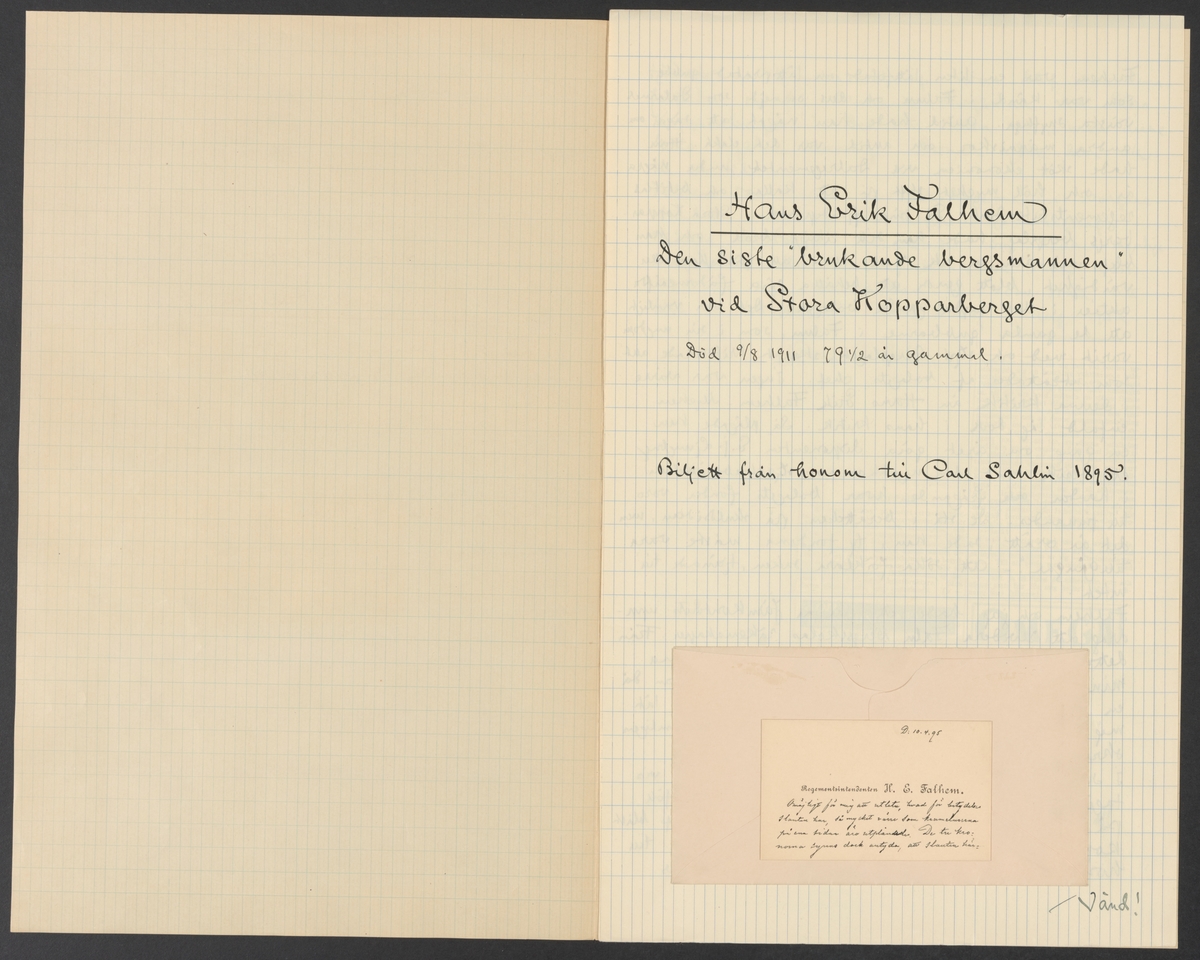 Hans Erik Falhem
Den siste "brukande bergsmannen"
vid Stora Kopparberget
Död 9/8 1911 79 1/2 år gammal.
Biljett från honom till Carl Sahlin 1895.
D. 10.4.95
Regementsintendenten H. E. Falhem.
Omöjligt för mig att utleta, hvad för betydelse
slanten har, så mycket värre som kraxelurerna
på ena sidan äro utplånade. De tre kro-
norna synas dock antyda, att slanten här-
Vänd!